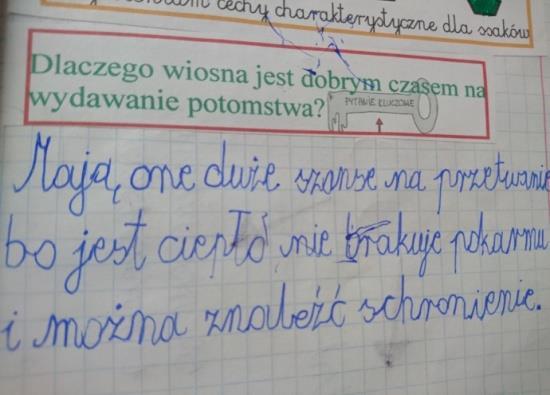 cechy charakterystyczne dla ssaków
Dlaczego wiosna jest dobrym czasem na
wydawanie potomstwa?
PYTANIE KLUCZOWE
Mają one duże szanse na przetwanie
bo jest ciepło nie brakuje pokarmu
i można znaleźć schronienie.